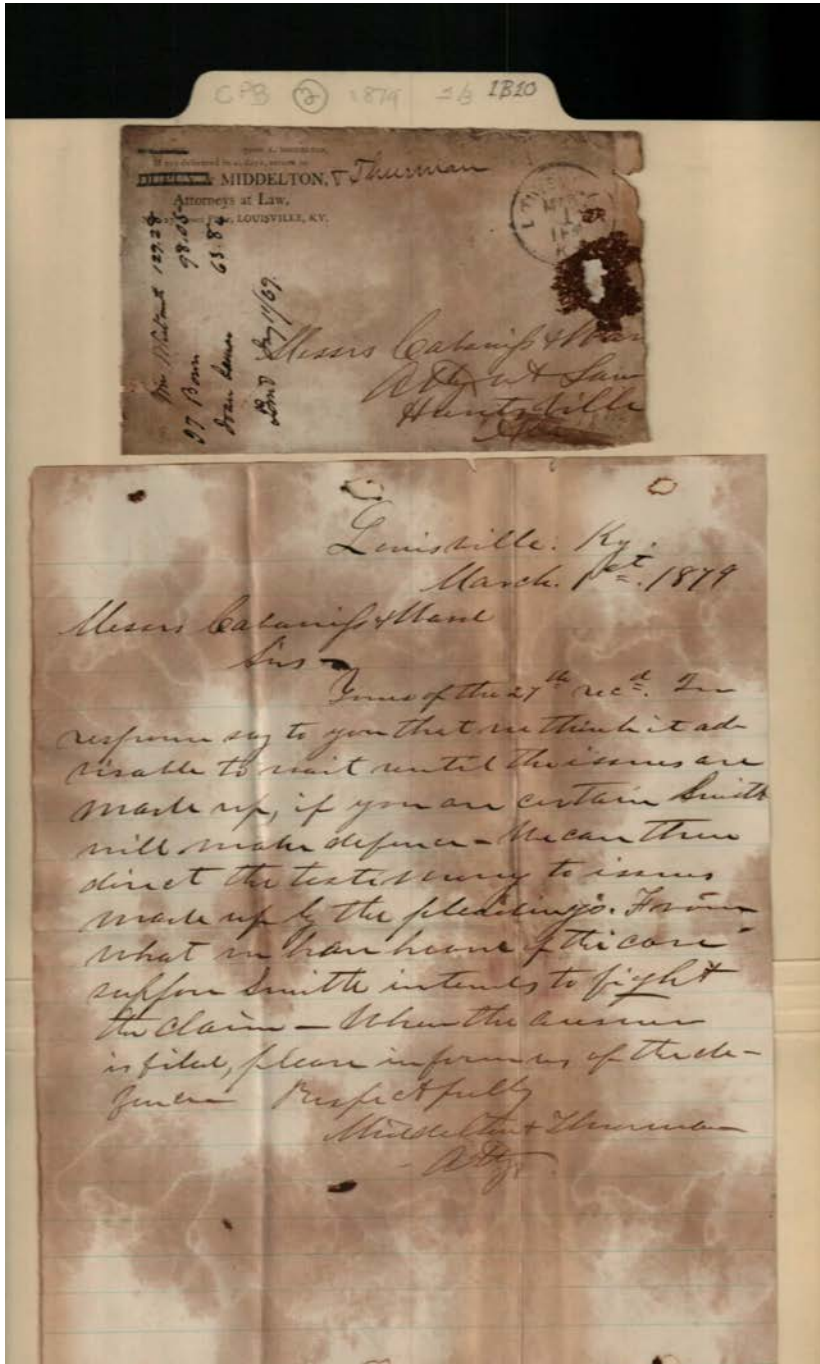 CPB 2 1879 1B10
If not delivered in days, return to
MIDDELTON, & Thurman
Attorneys at Law,
LOUISVILLE, KY.
129.28
98.05
63.84
Messrs Cabaniss & Ward
Atty at Law
Huntsville
Ala
Louisville. Ky.
March. 1st. 1879
Messrs Cabaniss & Ward
Sirs
Yours of the 27th rec'd. In
response say to you that we think it ad-
visable to wait until the issues are
made up, if you are certain Smith
will make defence - We can then
direct the testimony to issues
made up by the pleadings. From
what we have heard of the case
suppose Smith intends to fight
the claim - When the answer
is filed, please inform us of the de-
fence - Respectfully
Middelton & Thurman
Attys